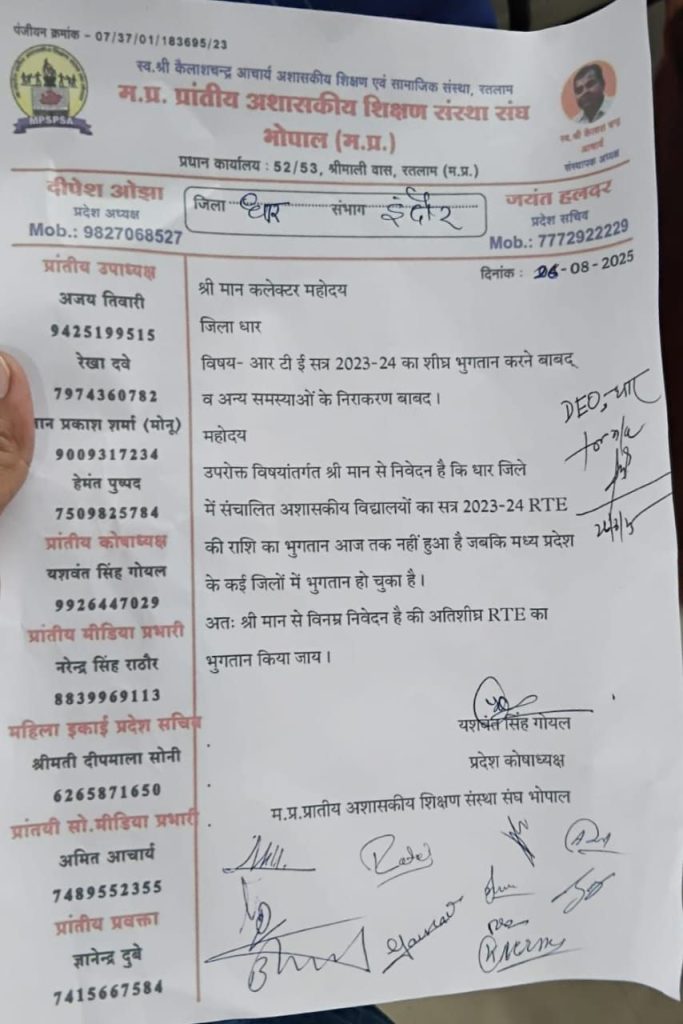 पंजीयन क्रमांक - 07/37/01/183695/23
स्व.श्री कैलाशचन्द्र आचार्य अशासकीय शिक्षण एवं सामाजिक संस्था, रतलाम
म.प्र. प्रांतीय अशासकीय शिक्षण संस्था संघ
भोपाल (म.प्र.)
प्रधान कार्यालय : 52/53, श्रीमाली वास, रतलाम (म.प्र.)
MPSPSA
स्व. श्री कैलाश चन्द्र
आचार्य
संस्थापक अध्यक्ष
दीपेश ओझा
प्रदेश अध्यक्ष
Mob.: 9827068527
जिला धार संभाग इंदौर
जयंत हलवर
प्रदेश सचिव
Mob.: 7772922229
दिनांक : 26-08-2025
प्रांतीय उपाध्यक्ष
अजय तिवारी
9425199515
रेखा दवे
7974360782
प्रकाश शर्मा (मोनू)
9009317234
हेमंत पुष्पद
7509825784
प्रांतीय कोषाध्यक्ष
यशवंत सिंह गोयल
9926447029
प्रांतीय मीडिया प्रभारी
नरेन्द्र सिंह राठौर
8839969113
महिला इकाई प्रदेश सचिव
श्रीमती दीपमाला सोनी
6265871650
प्रांतयी सो.मीडिया प्रभारी
अमित आचार्य
7489552355
प्रांतीय प्रवक्ता
ज्ञानेन्द्र दुबे
7415667584
श्री मान कलेक्टर महोदय
जिला धार
विषय- आर टी ई सत्र 2023-24 का शीघ्र भुगतान करने बाबद्
व अन्य समस्याओं के निराकरण बाबद।
महोदय
उपरोक्त विषयांतर्गत श्री मान से निवेदन है कि धार जिले
में संचालित अशासकीय विद्यालयों का सत्र 2023-24 RTE
की राशि का भुगतान आज तक नहीं हुआ है जबकि मध्य प्रदेश
के कई जिलों में भुगतान हो चुका है।
अतः श्री मान से विनम्र निवेदन है की अतिशीघ्र RTE का
भुगतान किया जाय।
DEO, धार
for n/a
यशवंत सिंह गोयल
प्रदेश कोषाध्यक्ष
म.प्र.प्रातीय अशासकीय शिक्षण संस्था संघ भोपाल